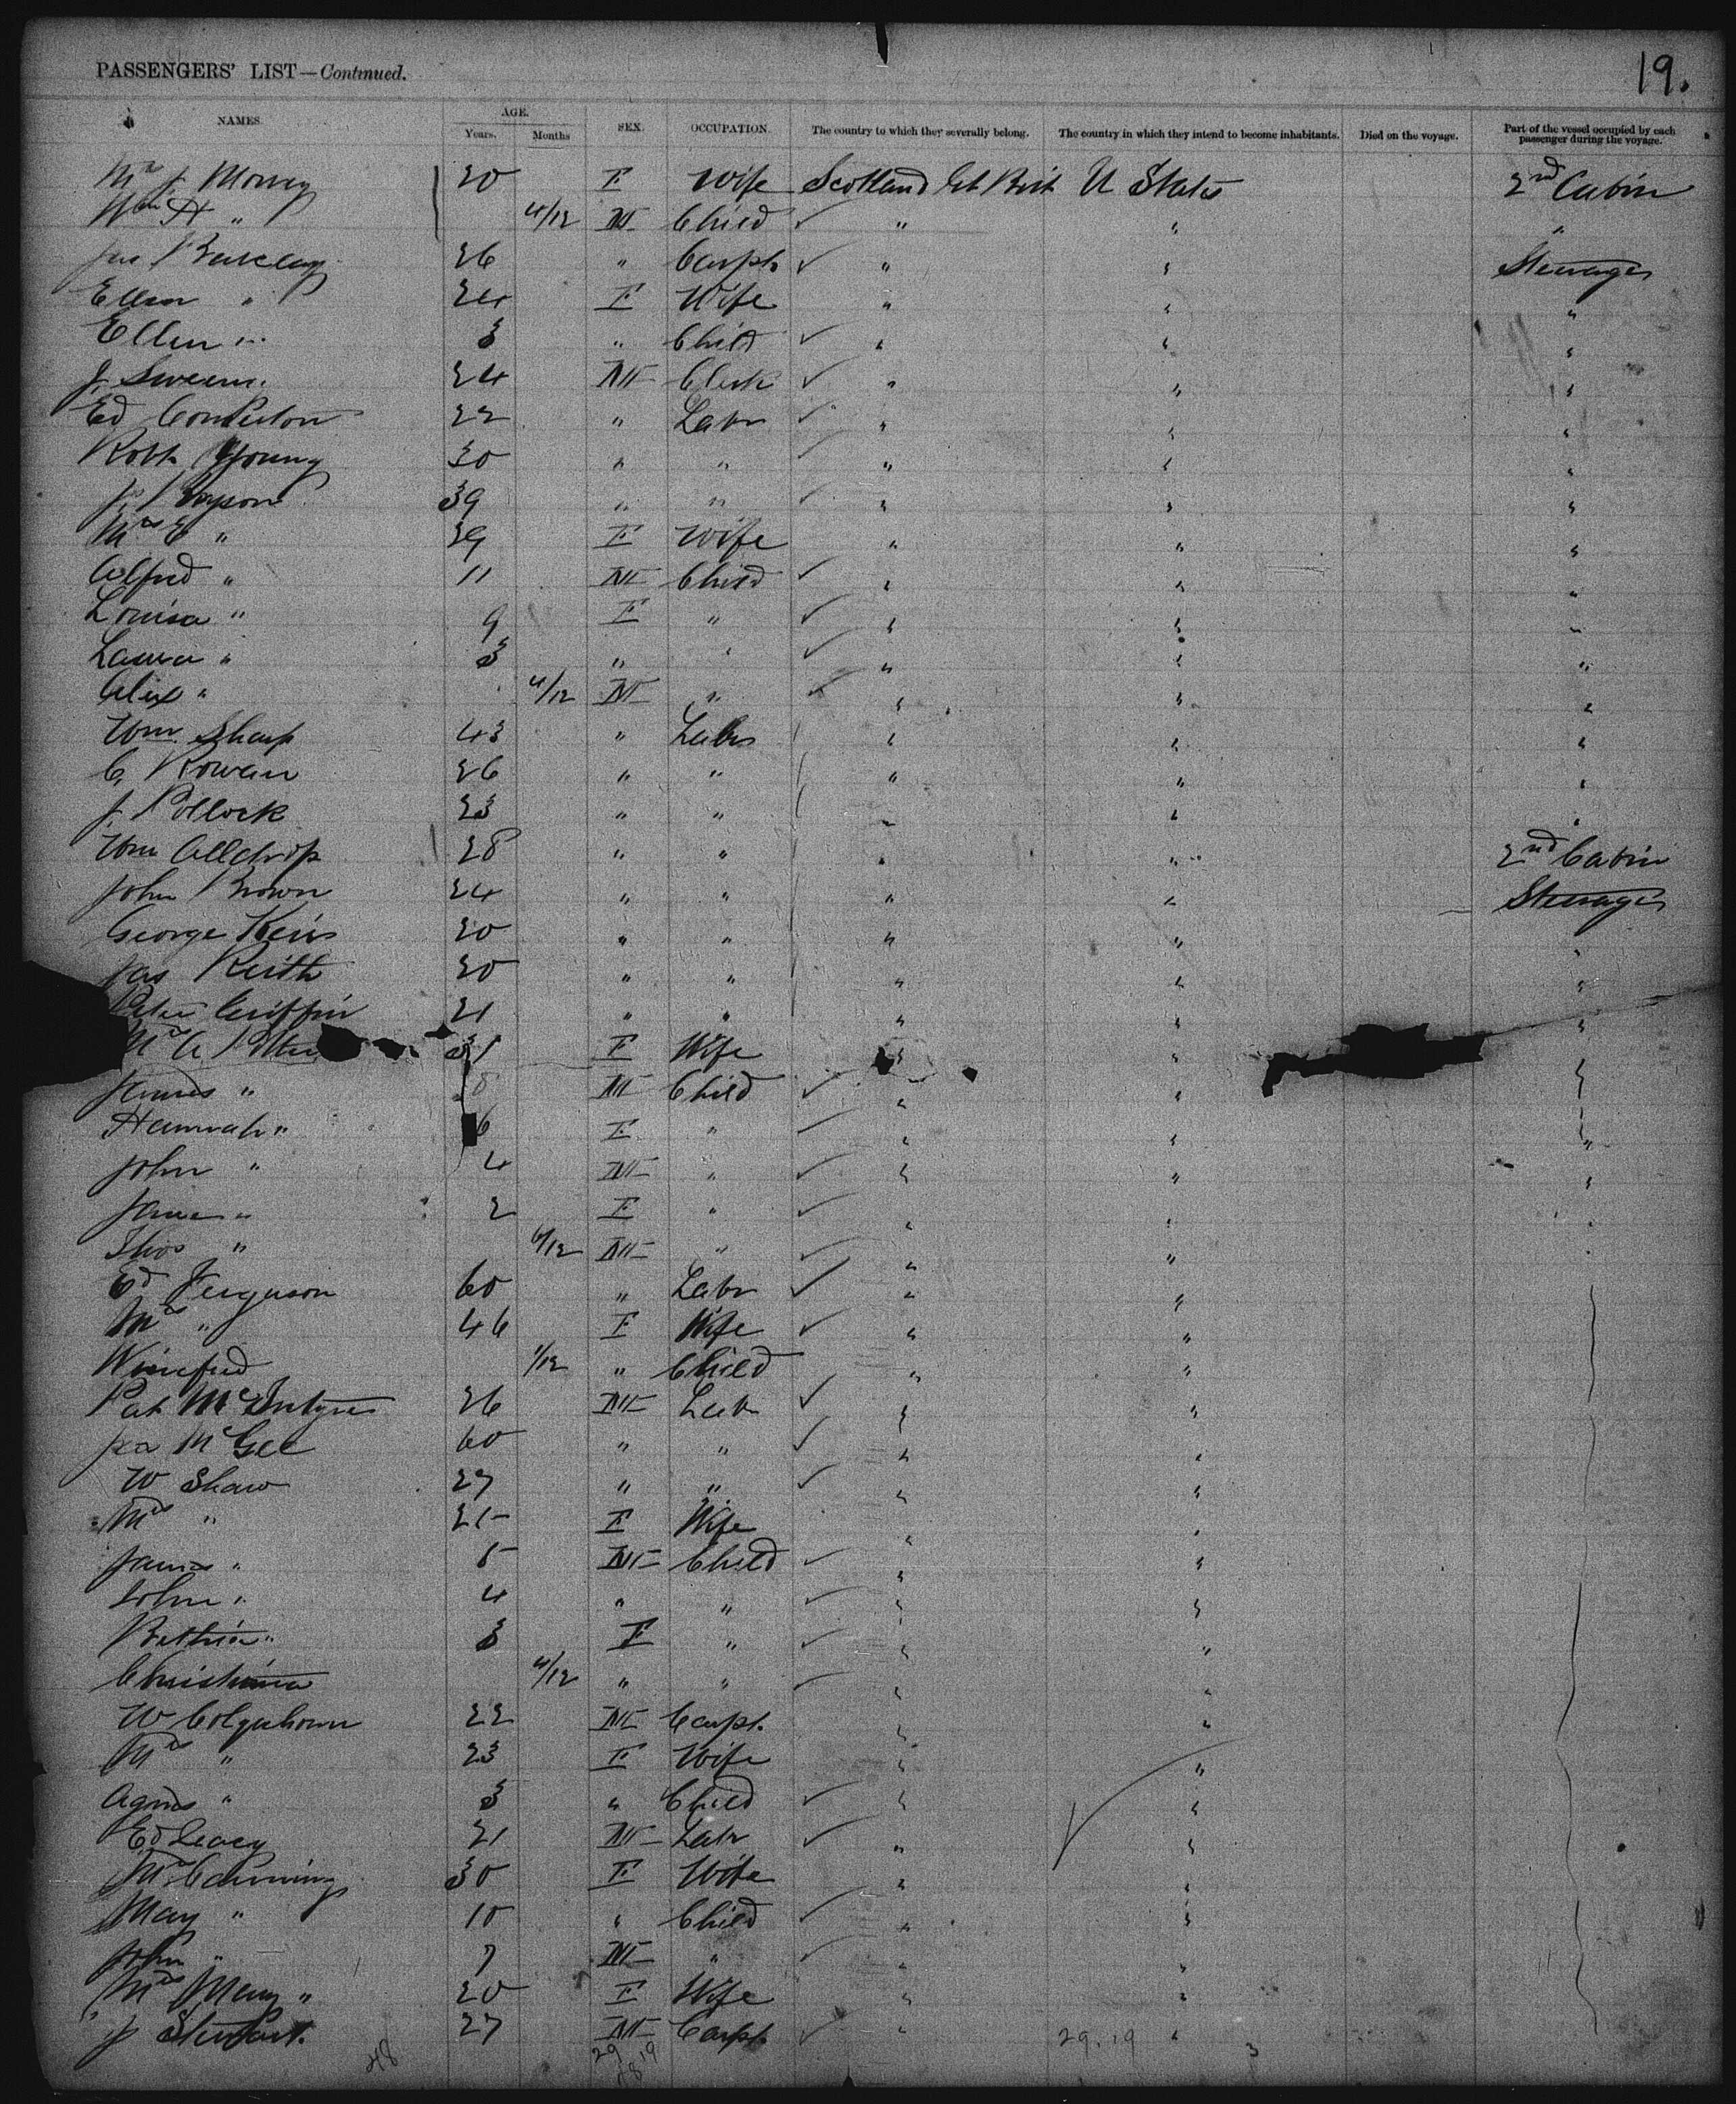 PASSENGERS' LIST—Continued. 19.
NAMES. AGE. Years. Months SEX. OCCUPATION. The country to which they severally belong. The country in which they intend to become inhabitants. Died on the voyage. Part of the vessel occupied by each passenger during the voyage.
Mrs J. 20 F Wife Scotland Gt Brit U States 2nd Cabin
Wm H " 4/12 M Child " " "
Jas Barclay 26 " Carpt. " " Steerage
Ellen " 24 F Wife " " "
Ellen " 3 " Child " " "
J. 24 M Clerk " " "
Ed 22 " Labr " " "
Robt Young 30 " " " " "
J. 39 " " " " "
Mrs E " 39 F Wife " " "
Alfred " 11 M Child " " "
Louisa " 9 F " " " "
Laura " 3 " " " " "
Alex " 4/12 M " " " "
Wm. Sharp 43 " Labr " " "
C. Rowan 26 " " " " "
J. Pollock 23 " " " " "
Wm Alldrop 28 " " " " 2nd Cabin
John Brown 24 " " " " Steerage
George Keirs 20 " " " " "
Jas Keith 20 " " " " "
Peter Griffin 21 " " " " "
Mrs A 31 F Wife " " "
James " 8 M Child " " "
Hannah " 6 F " " " "
John " 4 M " " " "
Jane " 2 F " " " "
Thos " M " " " "
Ed Ferguson 60 " Labr " "
Mrs " 46 F Wife " "
Winefred 1/12 " Child " "
Pat McIntyre 26 M Labr " "
McGee 60 " " " "
W Shaw 27 " " " "
Mrs " F Wife " "
James " 5 M Child " "
John " 4 " " " "
Bethia " 3 F " " "
Christina 4/12 " " " "
W Colquhoun 22 M Carpt. " "
Mrs " 23 F Wife " "
Agnes " 3 " Child " "
Ed Leacy 21 M Labr " "
Mrs Canning 30 F Wife " "
Mary " 10 " Child " "
John " 7 M " " "
Mrs Mary " 20 F Wife " "
J Stewart. 27 M Carpt. " "
48 29 19 29.19 3